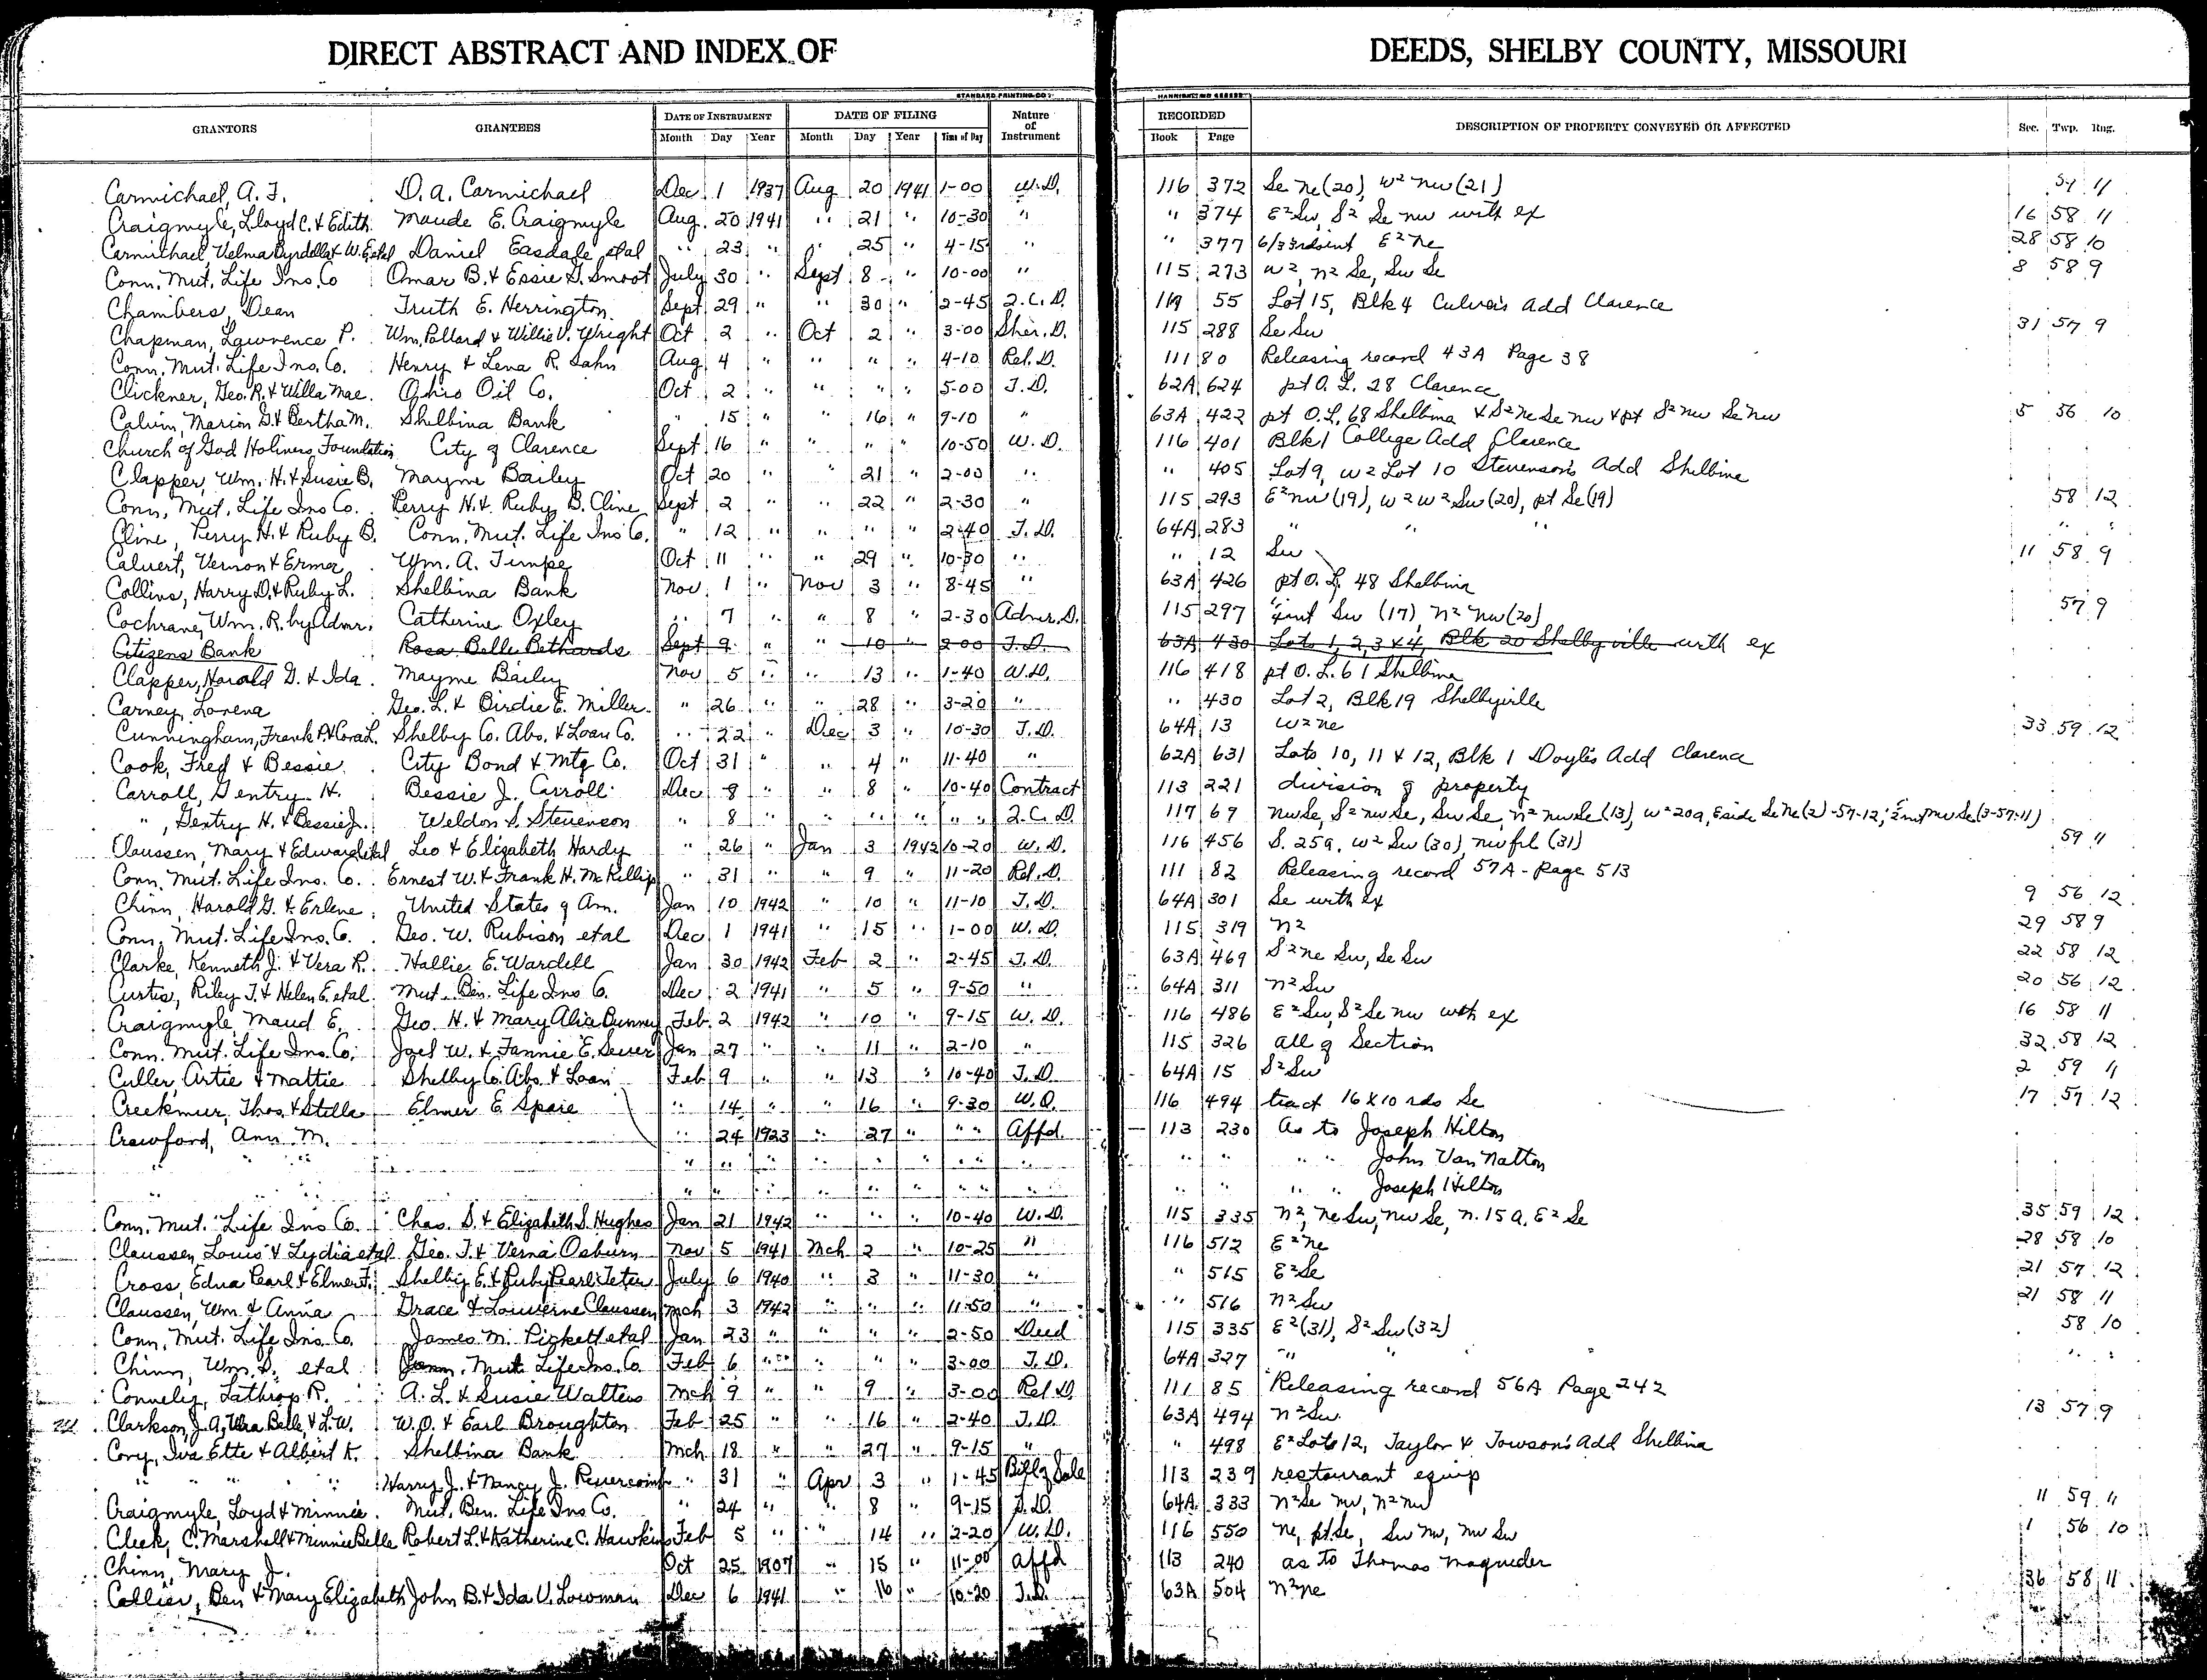 DIRECT ABSTRACT AND INDEX OF DEEDS, SHELBY COUNTY, MISSOURI
STANDARD PRINTING CO.
GRANTORS GRANTEES DATE OF INSTRUMENT DATE OF FILING Nature of Instrument RECORDED DESCRIPTION OF PROPERTY CONVEYED OR AFFECTED Sec. Twp. Rng.
Month Day Year Month Day Year Time of Day Book Page
Carmichael, A. F. D. A. Carmichael Dec 1 1937 Aug 20 1941 1-00 W.D. 116 372 Se Ne (20), W² NW (21) 59 11
Craigmyle, Lloyd C. & Edith Maude E. Craigmyle Aug. 20 1941 " 21 " 10-30 " " 374 E² Sw, S² Se NW with ex 16 58 11
Carmichael, Velma Byrdella & W. Etal Daniel Easdale etal " 23 " " 25 " 4-15 " " 377 E² Ne 28 58 10
Conn. Mut. Life Ins. Co Omar B. & Essie G. Smoot July 30 " Sept 8 " 10-00 " 115 273 W², N² Se, Sw Se 8 58 9
Chambers, Dean Truth E. Herrington Sept 29 " " 30 " 2-45 Q.C.D. 119 55 Lot 15, Blk 4 Culver's Add Clarence
Chapman, Lawrence P. Wm. Pollard & Willie V. Wright Oct 2 " Oct 2 " 3-00 Sher. D. 115 288 Se Sw 31 57 9
Conn. Mut. Life Ins. Co. Henry & Lena R. Sahn Aug 4 " " " " 4-10 Rel. D. 111 80 Releasing record 43A Page 38
Clickner, Geo. R. & Willa Mae. Ohio Oil Co. Oct 2 " " " " 5-00 T.D. 62A 624 pt O. L. 28 Clarence
Calvin, Marion G. & Bertha M. Shelbina Bank " 15 " " 16 " 9-10 " 63A 422 pt O.L. 68 Shelbina & S² Ne Se NW & pt S² NW Se NW 5 56 10
Church of God Holiness Foundation City of Clarence Sept 16 " " " " 10-50 W.D. 116 401 Blk 1 College Add Clarence
Clapper, Wm. H. & Susie B. Mayme Bailey Oct 20 " " 21 " 2-00 " " 405 Lot 9, W² Lot 10 Stevenson's Add Shelbina
Conn. Mut. Life Ins Co. Perry H. & Ruby B. Cline Sept 2 " " 22 " 2-30 " 115 293 E² NW (19), W² W² Sw (20), pt Se (19) 58 12
Cline, Perry H. & Ruby B. Conn. Mut. Life Ins Co. " 12 " " " " 2-40 T.D. 64A 283 " " " " "
Calvert, Vernon & Erma Wm. A. Timpe Oct 11 " " 29 " 10-30 " " 12 Sw 11 58 9
Collins, Harry D. & Ruby L. Shelbina Bank Nov. 1 " Nov 3 " 8-45 " 63A 426 pt O. L. 48 Shelbina
Cochrane, Wm. R. by Admr. Catherine Oxley " 7 " " 8 " 2-30 Admr. D. 115 297 Sw (17), N² NW (20) 57 9
Citizens Bank Rosa Belle Bethards Sept 9 " " 10 " 2-00 T.D. 63A 430 Lots 1, 2, 3 & 4, Blk 20 Shelbyville with ex
Clapper, Harold G. & Ida Mayme Bailey Nov 5 " " 13 " 1-40 W.D. 116 418 pt O. L. 61 Shelbina
Carney, Lorena Geo. L. & Birdie E. Miller " 26 " " 28 " 3-20 " " 430 Lot 2, Blk 19 Shelbyville
Cunningham, Frank P. & Cora L. Shelby Co. Abs. & Loan Co. " 22 " Dec 3 " 10-30 T.D. 64A 13 W² Ne 33 59 12
Cook, Fred & Bessie City Bond & Mtg Co. Oct 31 " " 4 " 11-40 " 62A 631 Lots 10, 11 & 12, Blk 1 Doyle's Add Clarence
Carroll, Gentry H. Bessie J. Carroll Dec 8 " " 8 " 10-40 Contract 113 221 division of property
" , Gentry H. & Bessie J. Weldon S. Stevenson " 8 " " " " " " Q.C.D. 117 67 NW Se, S² NW Se, Sw Se, N² NW Se (13), W² 20a, E side Se Ne (2)-57-12, NW Se (3-57-11)
Claussen, Mary & Edward etal Leo & Elizabeth Hardy " 26 " Jan 3 1942 10-20 W.D. 116 456 S. 25a. W² Sw (30), NW frl (31) 59 11
Conn. Mut. Life Ins. Co. Ernest W. & Frank H. McKillip " 31 " " 9 " 11-20 Rel. D. 111 82 Releasing record 57A - Page 513
Chinn, Harold G. & Erlene United States of Am. Jan 10 1942 " 10 " 11-10 T.D. 64A 301 Se with ex 9 56 12
Conn. Mut. Life Ins. Co. Geo. W. Rubison etal Dec 1 1941 " 15 " 1-00 W.D. 115 319 N² 29 58 9
Clarke, Kenneth J. & Vera R. Hallie E. Wardell Jan 30 1942 Feb 2 " 2-45 T.D. 63A 469 S² Ne Sw, Se Sw 22 58 12
Curtis, Riley T. & Helen E. etal. Mut. Ben. Life Ins Co. Dec 2 1941 " 5 " 9-50 " 64A 311 N² Sw 20 56 12
Craigmyle, Maud E. Geo. H. & Mary Alice Feb. 2 1942 " 10 " 9-15 W.D. 116 486 E² Sw, S² Se NW with ex 16 58 11
Conn. Mut. Life Ins. Co. Joel W. & Fannie E. Jan 27 " " 11 " 2-10 " 115 326 all of Section 32 58 12
Culler, Artie & Mattie Shelby Co. Abs. & Loan Feb 9 " " 13 " 10-40 T.D. 64A 15 S² Sw 2 59 11
Creekmur, Thos. & Stella Elmer E. Spaie " 14 " " 16 " 9-30 W.D. 116 494 tract 16 X 10 rds Se 17 57 12
Crawford, Ann M. " 24 1923 " 27 " " " Affd. 113 230 As to Joseph Hilton
" " " " " " " " " " " " " " " John Van Natton
" " " " " " " " " " " " " " " Joseph Hilton
Conn. Mut. Life Ins Co. Chas. S. & Elizabeth S. Hughes Jan 21 1942 " " " 10-40 W.D. 115 335 N², Ne Sw, NW Se, N. 15 a. E² Se 35 59 12
Claussen, Louis & Lydia etal Geo. T. & Verna Osburn Nov 5 1941 Mch 2 " 10-25 " 116 512 E² Ne 28 58 10
Cross, Edna Pearl & Elmer F. Shelby E. & Ruby Pearl Teter July 6 1940 " 3 " 11-30 " " 515 E² Se 21 57 12
Claussen, Wm. & Anna Grace & Louverne Claussen Mch 3 1942 " " " 11-50 " " 516 N² Sw 21 58 11
Conn. Mut. Life Ins. Co. James M. Pickett etal Jan 23 " " " " 2-50 Deed 115 335 E² (31), S² Sw (32) 58 10
Chinn, Wm. D. etal Conn. Mut. Life Ins. Co Feb 6 " " " " 3-00 T.D. 64A 327 " " " " "
Connely, Lathrop R. A. L. & Susie Walters Mch 9 " " 9 " 3-00 Rel. D. 111 85 Releasing record 56A Page 242
Clarkson, J. A., Vera Belle, & L. W. W. O. & Earl Broughton Feb 25 " " 16 " 2-40 T.D. 63A 494 N² Sw 13 57 9
Cory, Iva Ette & Albert K. Shelbina Bank Mch. 18 " " 27 " 9-15 " " 498 E² Lots 12, Taylor & Towson's Add Shelbina
" " " " Harry J. & Nancy J. Revercomb " 31 " Apr 3 " 1-45 Bill of Sale 113 239 restaurant equip
Craigmyle, Loyd & Minnie Mut. Ben. Life Ins Co. " 24 " " 8 " 9-15 T.D. 64A 333 N² Se NW, N² NW 11 59 11
Cleek, C. Marshall & Minnie Belle Robert L. & Katherine C. Hawkins Feb 5 " " 14 " 2-20 W.D. 116 550 Ne, pt Se, Sw NW, NW Sw 1 56 10
Chinn, Mary J. Oct 25 1907 " 15 " 11-00 Affd 113 240 as to Thomas Magruder
Collier, Ben & Mary Elizabeth John B. & Ida V. Lowman Dec 6 1941 " 16 " 10-20 T.D. 63A 504 N² Ne 36 58 11